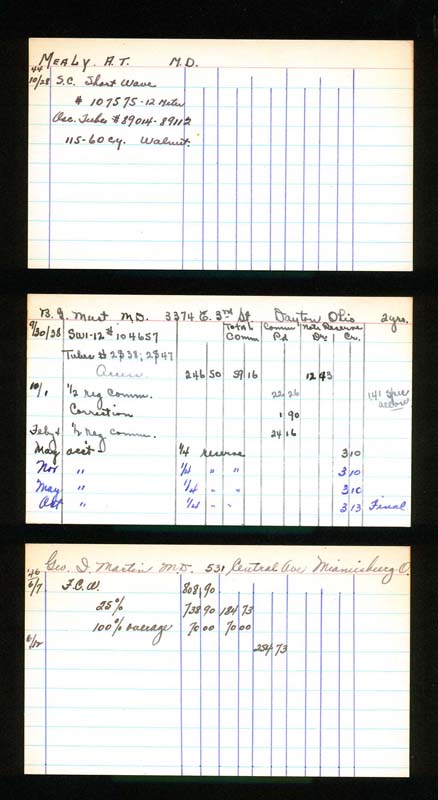 MEALY. A.T. M.D.
'44
10/28 S.C. Short Wave
# 107575-12 Meter
Osc. Tubes # 89014-89112
115-60 cy. Walnut.
B. J. Must M.D. 3374 E. 3rd St. Dayton Ohio 2 yrs.
9/30/38 SW1-12 # 104657 Total Comm Comm Pd Note Reserve Dr. Cr.
Tubes # 2338; 2347
246 50 59 16 12 43
10/1 1/2 reg Comm. 22 26 141 spec
Correction 1 90
Feby 1/2 reg comm. 24 16
May acct 1/4 reserve 3 10
Nov " 1/4 " " 3 10
May " 1/4 " " 3 10
Oct " 1/4 " " 3 13 Final
Geo. I. Martin M.D. 531 Central Ave Miamisburg O.
'46
6/7 F.C.W. 808 90
25% 738 90 184 73
100% overage 70 00 70 00
6/12 254 73